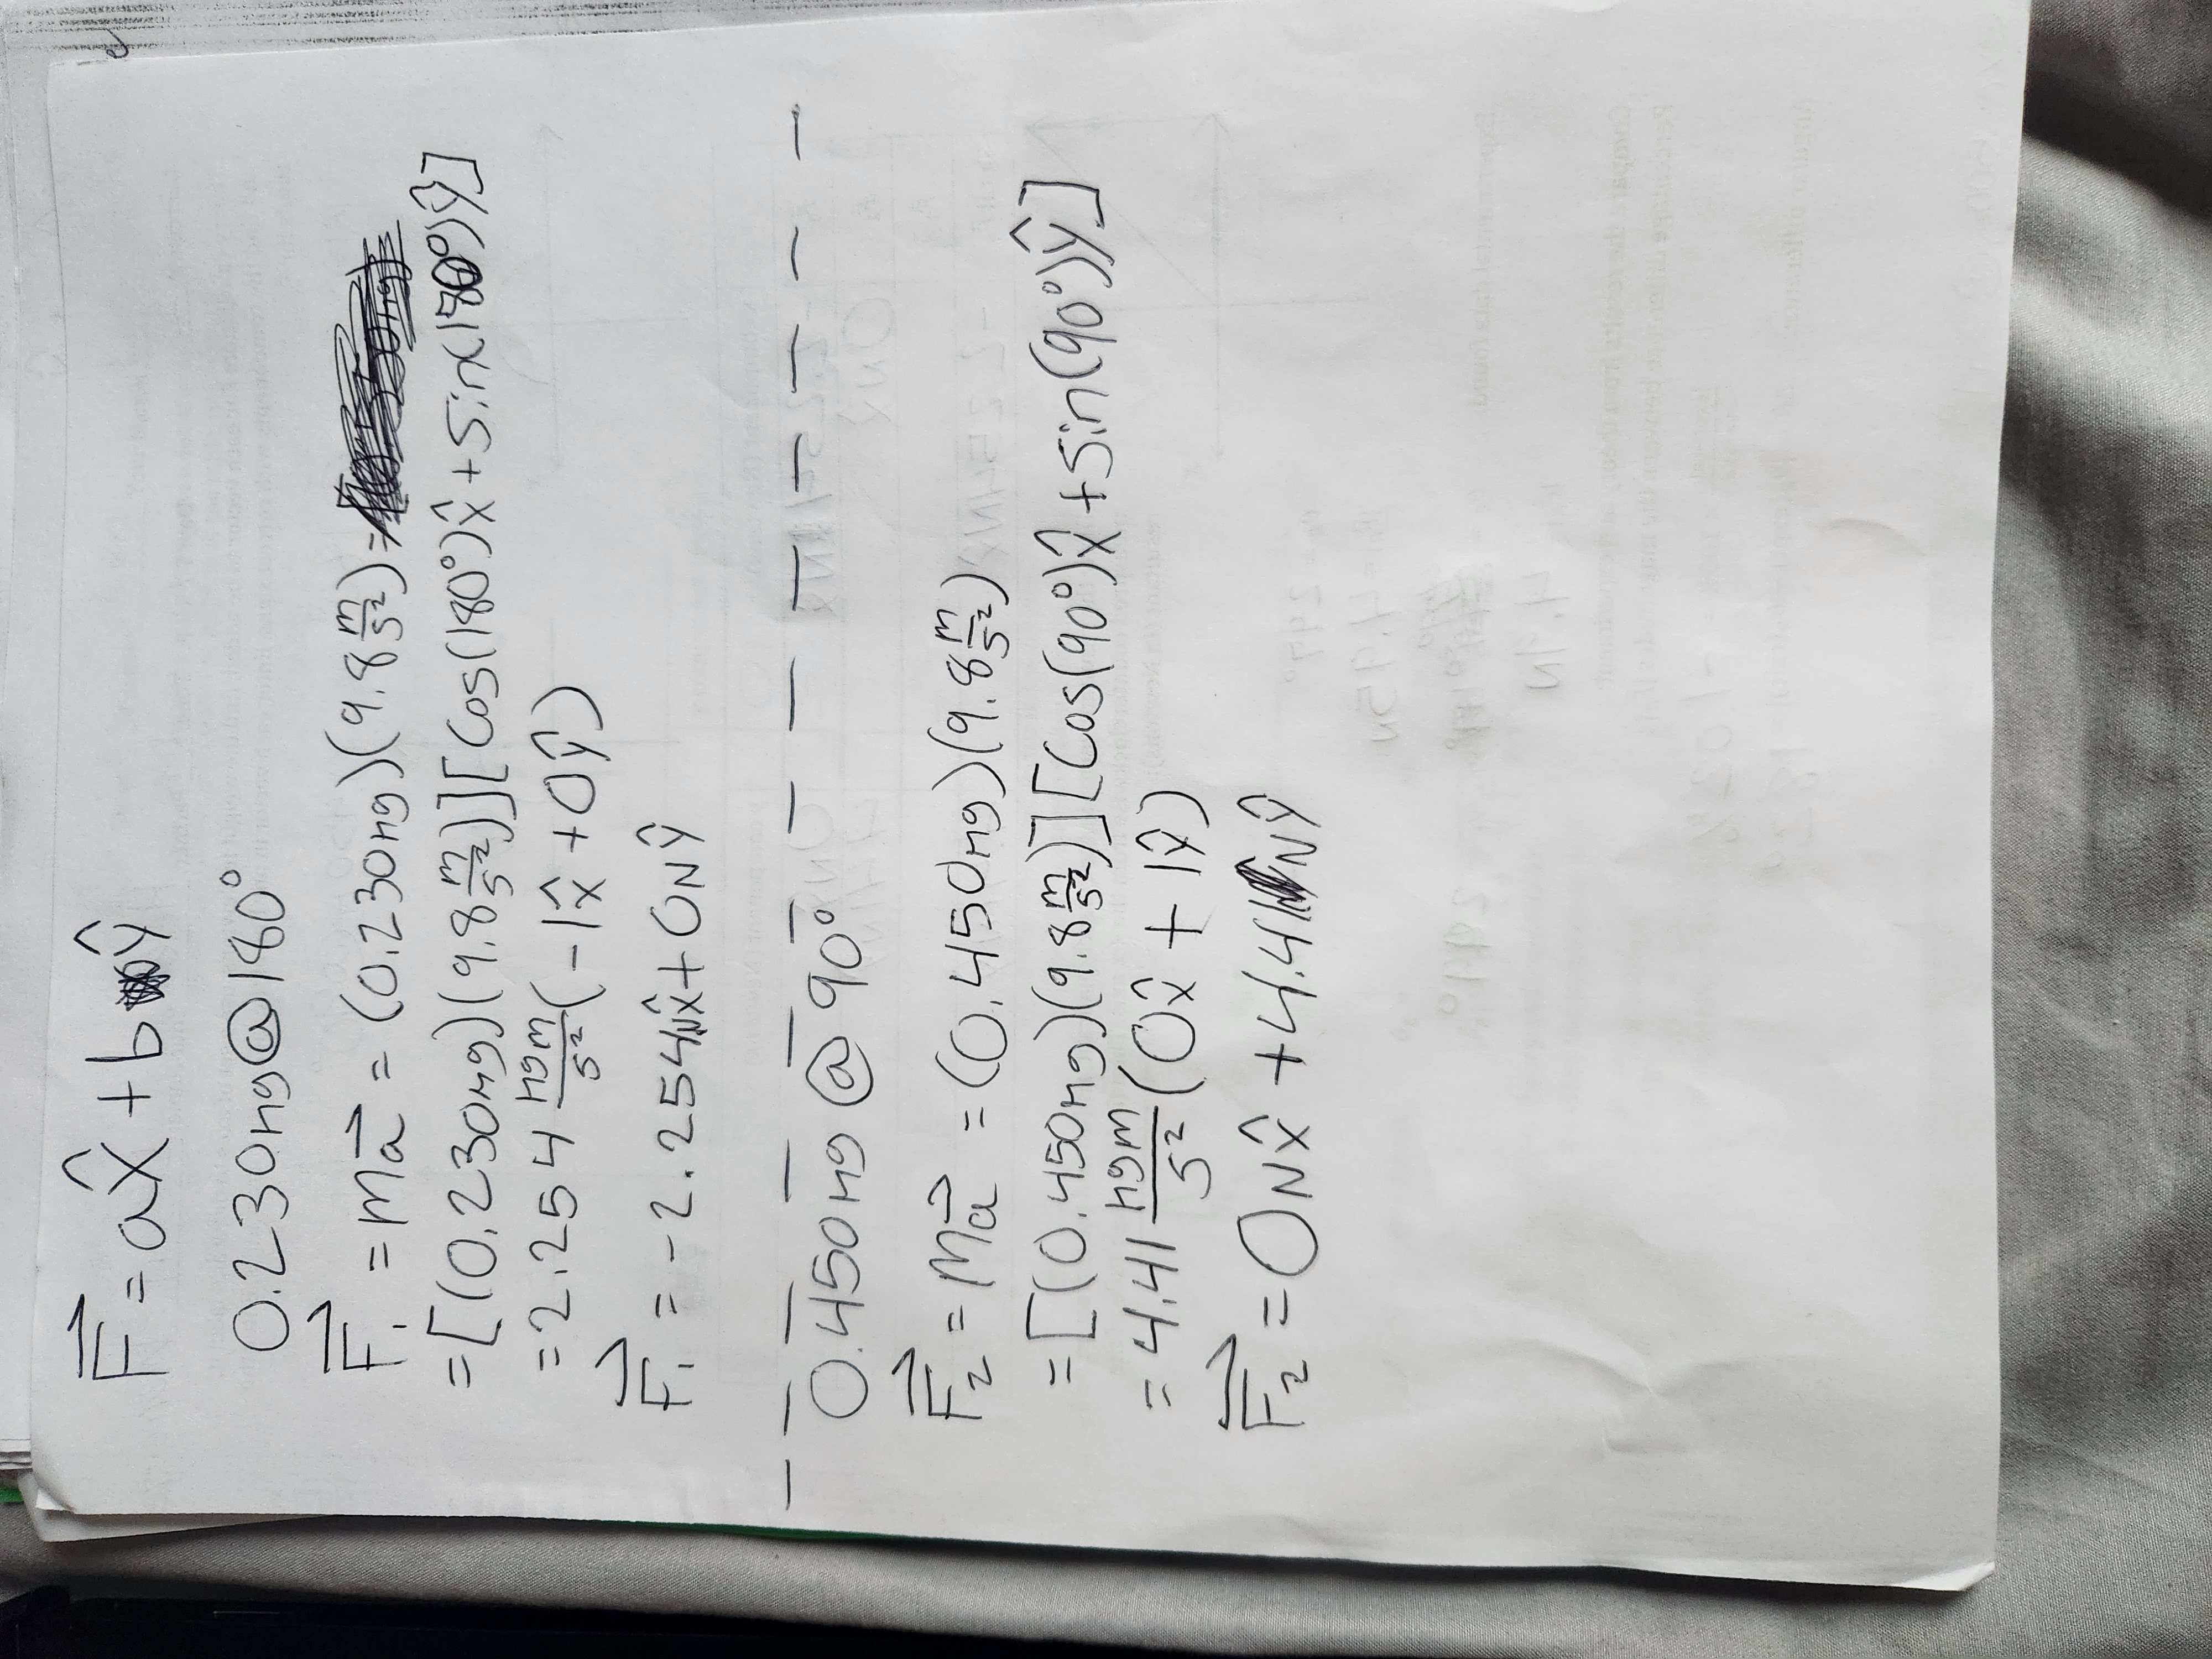 F⃗ = ax̂ + bŷ
0.230kg@180°
F⃗₁ = ma⃗ = (0.230kg)(9.8 m/s²) =
= [(0.230kg)(9.8 m/s²)][Cos(180°)x̂ + Sin(180°)ŷ]
= 2.254 kgm/s² (-1x̂ + 0ŷ)
F⃗₁ = -2.254Nx̂ + 0Nŷ
0.450kg @ 90°
F⃗₂ = Ma⃗ = (0.450kg)(9.8 m/s²)
= [(0.450kg)(9.8 m/s²)][Cos(90°)x̂ + Sin(90°)ŷ]
= 4.41 kgm/s² (0x̂ + 1ŷ)
F⃗₂ = 0Nx̂ + 4.41Nŷ